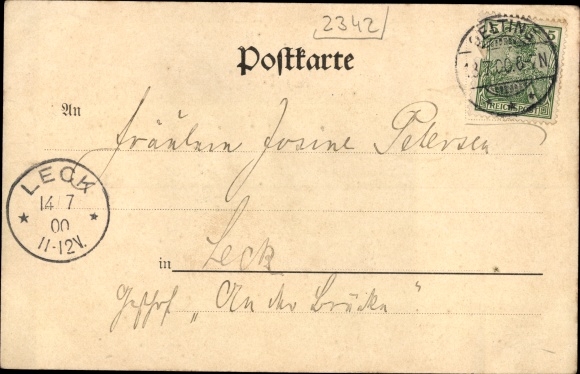 2342
Postkarte
GELTING
13.7.00.6-7N
5
REICHSPOST
An
Fräulein Josine Petersen
LECK
14/7
00
11-12V.
in Leck
Gasthof „An der Brücke“.